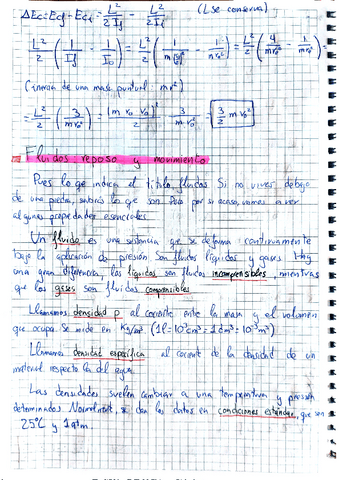 ΔEc = Ecf - Eci = L²/2If - L²/2I₀ (L se conserva)
L²/2 (1/If - 1/I₀) = L²/2 (1/m(r₀/2)² - 1/mr₀²) = L²/2 (4/mr₀² - 1/mr₀²)
(inercia de una masa puntual mr²)
= L²/2 (3/mr₀²) = (m r₀ v₀)²/2 · 3/mr₀² = 3/2 m v₀²
Fluidos reposo y movimiento
Pues lo que indica el título, fluidos. Si no vives debajo
de una piedra, sabrás lo que son. Pero por si acaso, vamos a ver
algunas propiedades esenciales.
Un fluido es una sustancia que se deforma continuamente
bajo la aplicación de presión. Son fluidos líquidos y gases. Hay
una gran diferencia, los líquidos son fluidos incompresibles, mientras
que los gases son fluidos compresibles.
Llamamos densidad ρ al cociente entre la masa y el volumen
que ocupa. Se mide en Kg/m³. (1l = 10³cm³ = 1dm³ = 10⁻³m³)
Llamamos densidad específica al cociente de la densidad de un
material respecto la del agua.
Las densidades suelen cambiar a una temperatura y presión
determinados. Normalment, se dan los datos en condiciones estándar, que son
25°C y 1atm.